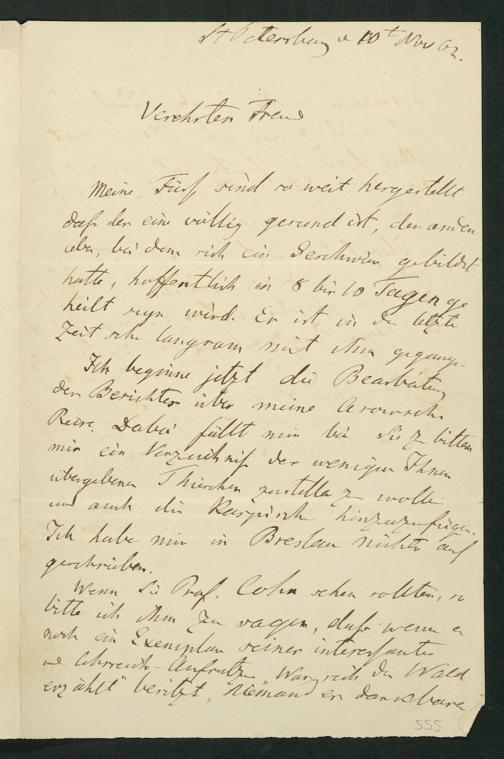 St Petersburg d 10t Nov 62.
Verehrter Freund
Meine Füße sind so weit hergestellt
daß der eine völlig gesund ist, der andere
aber, bei dem sich ein Geschwür gebildet
hatte, hoffentlich in 8 bis 10 Tagen ge
heilt seyn wird. Es ist in der letzten
Zeit sehr langsam mit ihm gegangen.
Ich beginne jetzt die Bearbeitung
des Berichtes über meine Asowsche
Reise. Dabei fällt mir bei Sie zu bitten
mir ein Verzeichniß der wenigen Ihnen
übergebenen Thierchen zustellen zu wollen
und auch die Kaspische hinzuzufügen.
Ich habe mir in Breslau nichts auf
geschrieben.
Wenn Sie Prof. Cohn sehen sollten, so
bitte ich ihm zu sagen, daß wenn er
noch ein Exemplar seines interessanten
und lehrreich Aufsatzes "Was sich der Wald
erzählt" besitzt, niemand es dankbarer
555